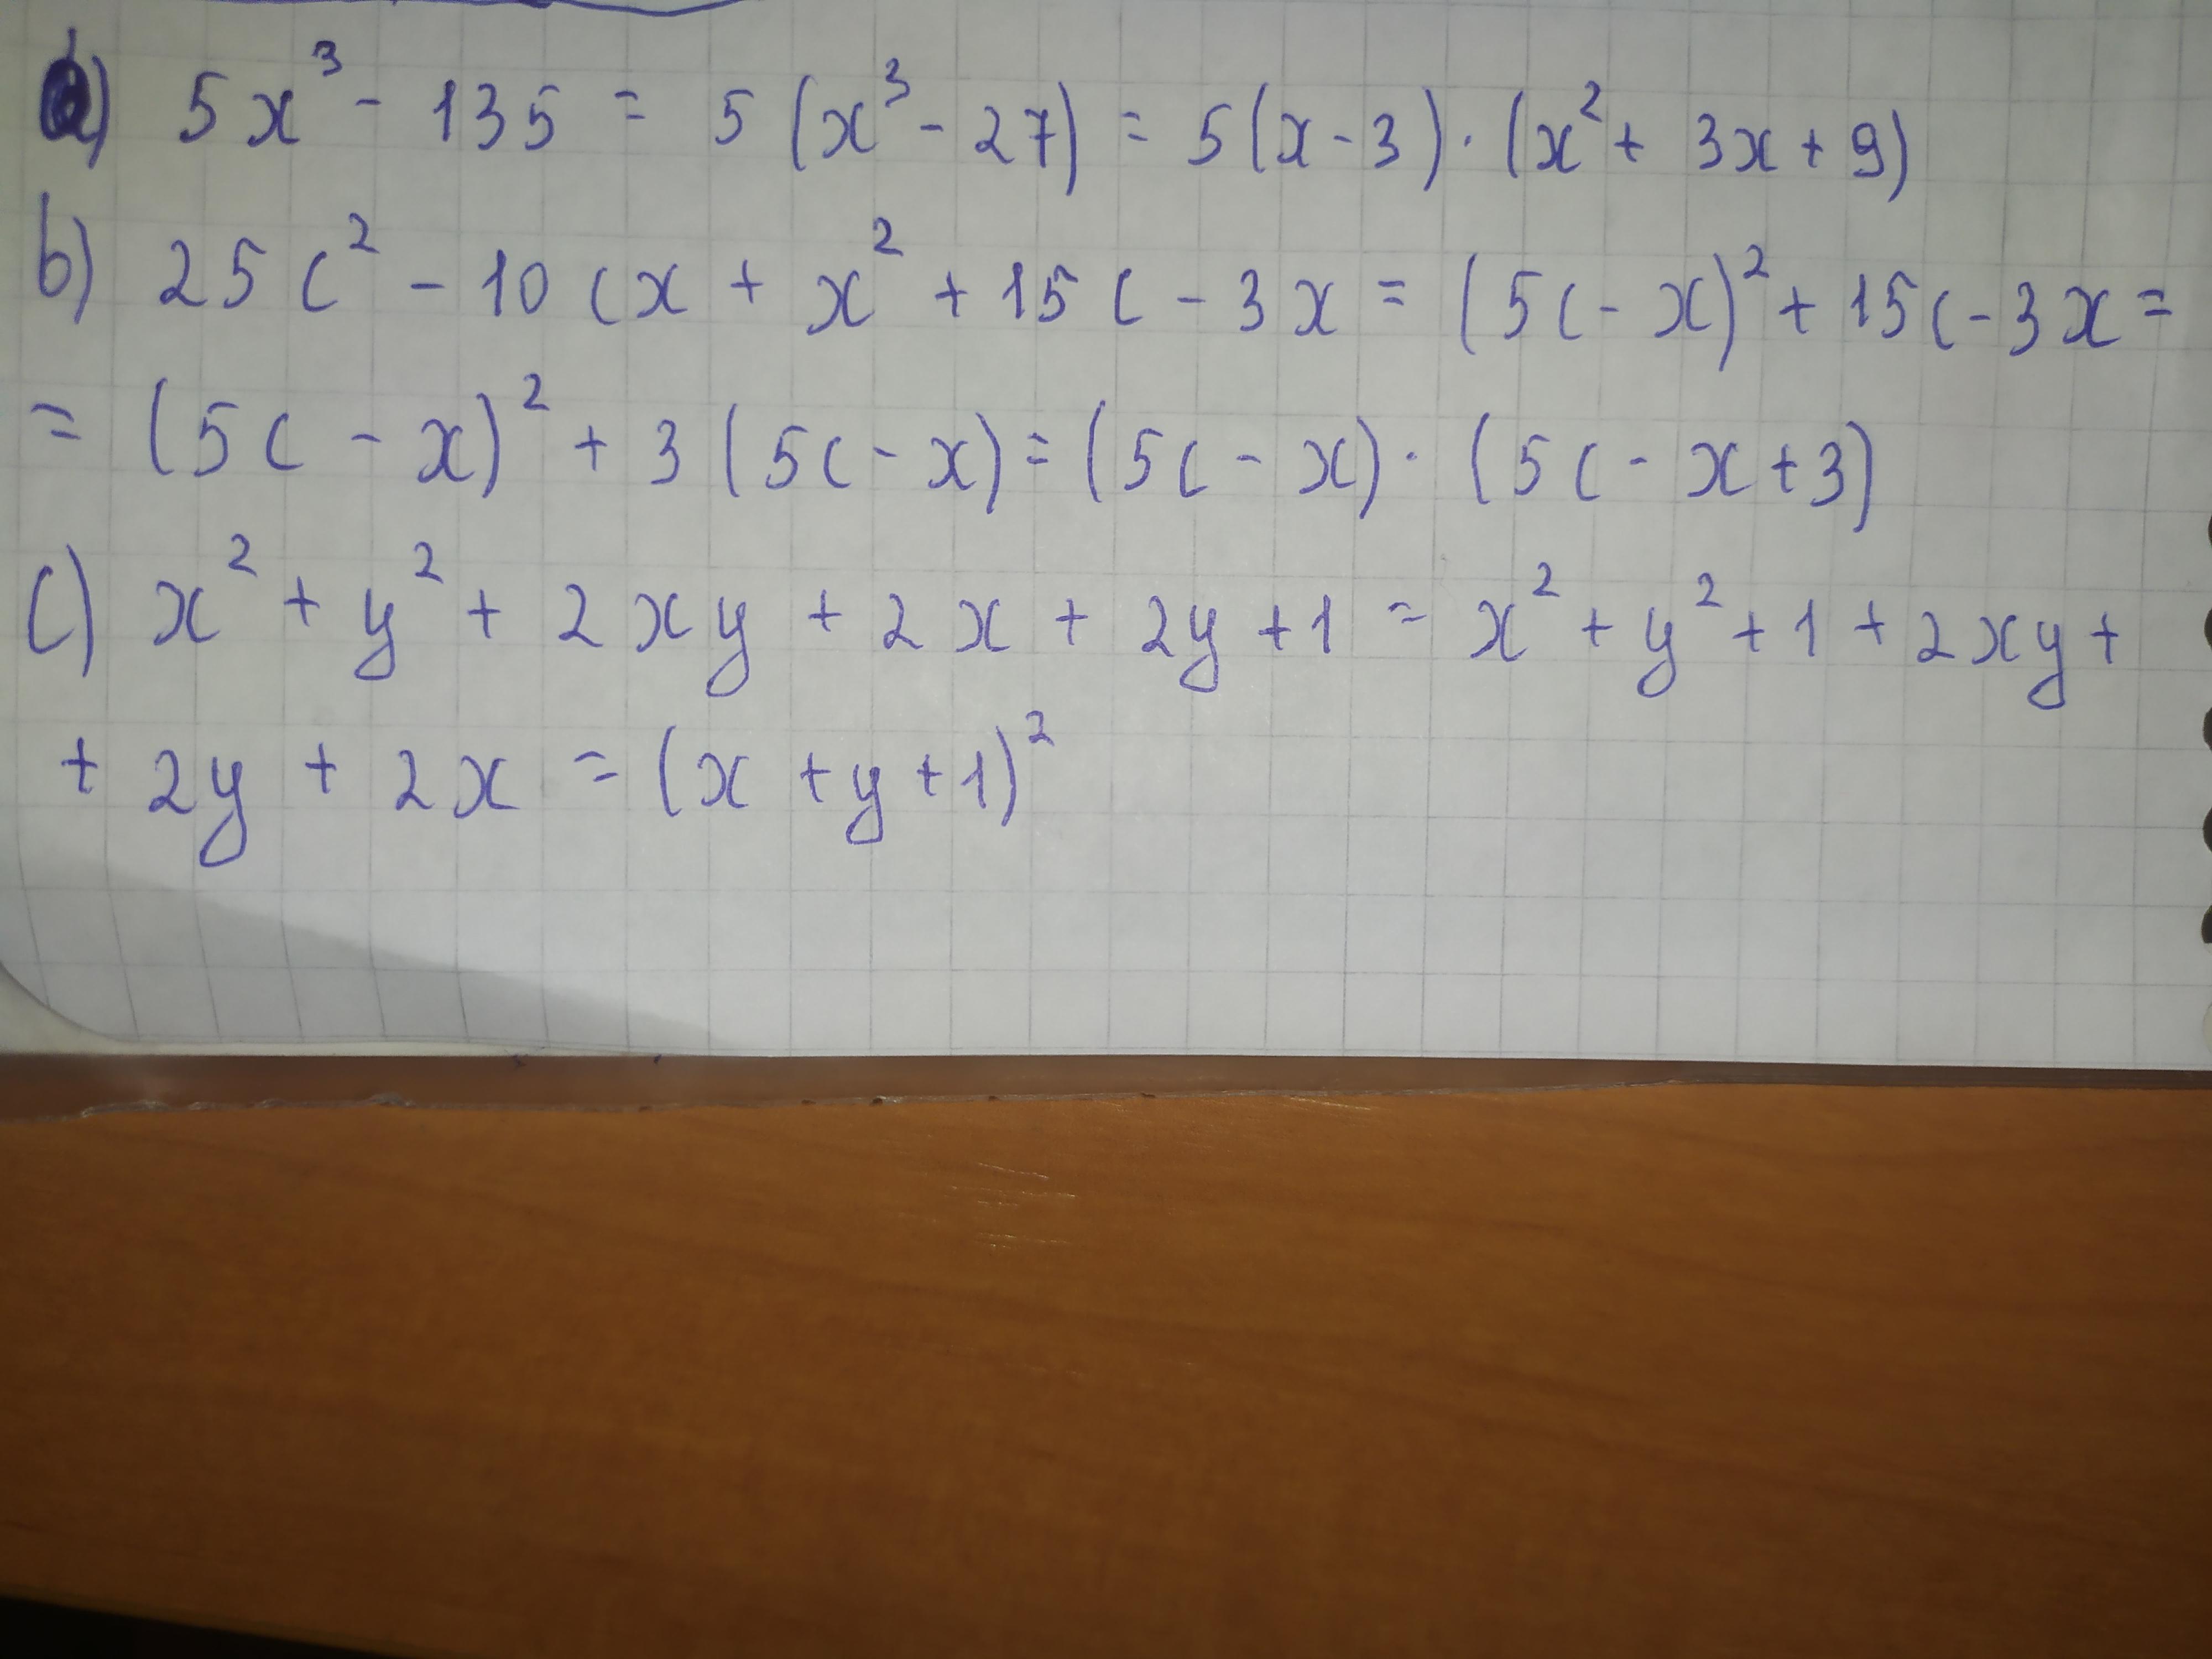 a) 5x³ - 135 = 5(x³ - 27) = 5(x - 3) · (x² + 3x + 9)
b) 25c² - 10cx + x² + 15c - 3x = (5c - x)² + 15c - 3x =
= (5c - x)² + 3(5c - x) = (5c - x) · (5c - x + 3)
c) x² + y² + 2xy + 2x + 2y + 1 = x² + y² + 1 + 2xy +
+ 2y + 2x = (x + y + 1)²